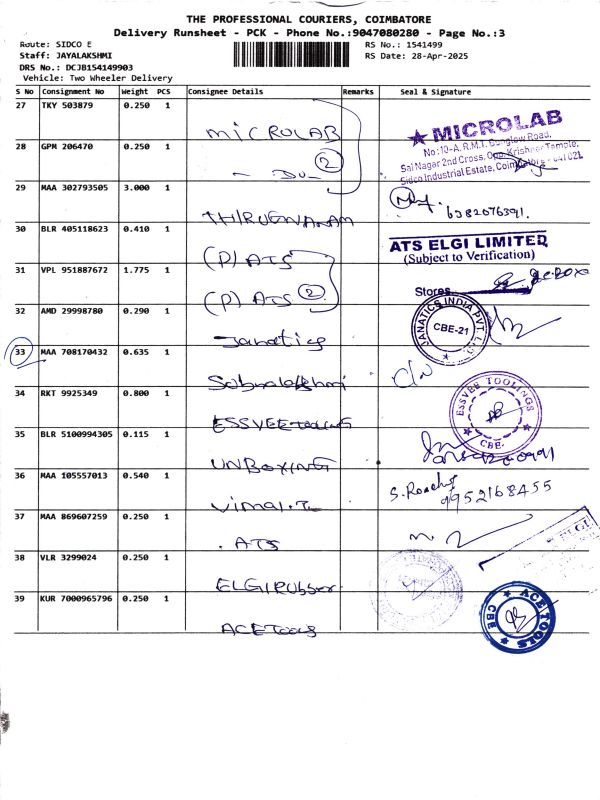 THE PROFESSIONAL COURIERS, COIMBATORE
Delivery Runsheet - PCK - Phone No.:9047080280 - Page No.:3
Route: SIDCO E
RS No.: 1541499
Staff: JAYALAKSHMI
RS Date: 28-Apr-2025
DRS No.: DCJB154149903
Vehicle: Two Wheeler Delivery
S No Consignment No Weight PCS Consignee Details Remarks Seal & Signature
27 TKY 503879 0.250 1 MICROLAB
★ MICROLAB
No:10-A, R.M.I. Bunglow Road,
Sai Nagar 2nd Cross, Opp. Krishner Temple,
Sidco Industrial Estate, Coimbatore - 641 021.
28 GPM 206470 0.250 1 - DO - 2
29 MAA 302793505 3.000 1 THIRUGNANAM
6382076391.
30 BLR 405118623 0.410 1 (P) ATS
ATS ELGI LIMITED
(Subject to Verification)
Stores
31 VPL 951887672 1.775 1 (P) ATS 2
32 AMD 29998780 0.290 1 Janatics
JANATICS INDIA PVT. LTD.
CBE-21
33 MAA 708170432 0.635 1
34 RKT 9925349 0.800 1 ESSVEE TOOLINGS
ESSVEE TOOLINGS
CBE.
35 BLR 5100994305 0.115 1 UNBOXING
36 MAA 105557013 0.540 1 Vimal.T
9952168455
37 MAA 869607259 0.250 1 . ATS
ELGI
38 VLR 3299024 0.250 1 ELGI Rubber
39 KUR 7000965796 0.250 1 ACE Tools
ACE TOOLS
CBE